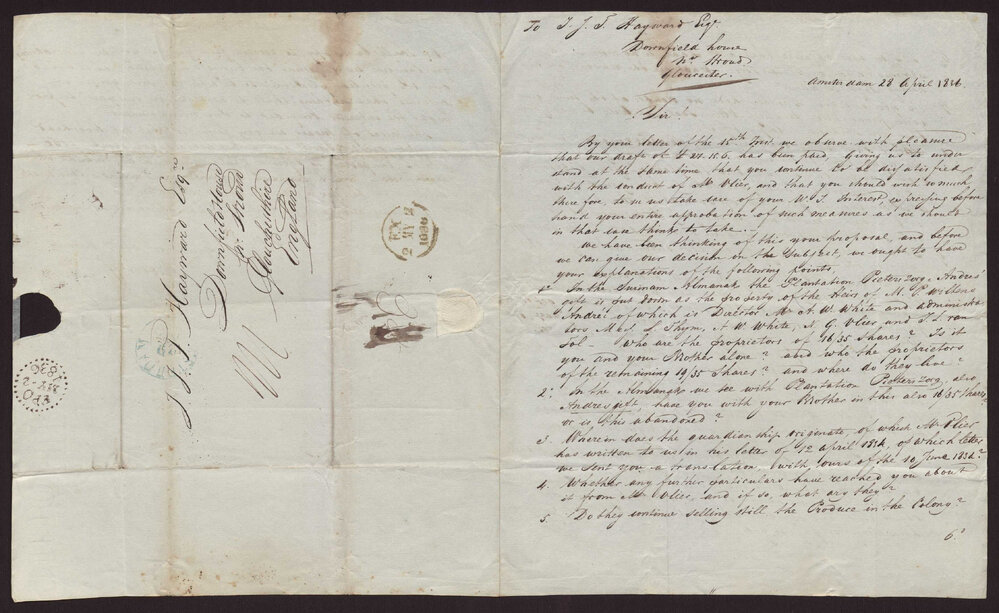 To J. J. T. Hayward Esqr
Downfield house
Nr Stroud
Gloucester.
Amsterdam 28 April 1836.
Sir!
By your letter of the 15th Inst. we observe with pleasure
that our draft of £ 21.15.6. has been paid. Giving us to under
stand at the same time, that you continue to be dissatisfied
with the conduct of Mr Vlier, and that you should wish so much
therefore, to see us take care of your W. I. Interest, expressing before
hand your entire approbation of such measures as we should
in that case think to take.
We have been thinking of this your proposal, and before
we can give our decision in the Subject, we ought to have
your explanations of the following points.
1. In the Surinam Almanak the Plantation Pieterszorg & Andrés
gift is put down as the property of the Heirs of M. P. Willens
André, of which is Director Mr A. W. White and administra
tors Mess. Shym, A. W. White, J. G. Vlier, and
Sol — who are the proprietors of 16/35 Shares? Is it
you and your Brother alone? and who the proprietors
of the remaining 19/35 Shares? and where do they live?
2. In the Almanak we see with Plantation Pieterszorg, also
Andresgift, have you with your Brother in this also 16/35 Shares?
or is this abandoned?
3. Wherein does the guardianship originate, of which Mr Vlier
has written to us in his letter of 12 April 1834, of which letter
we sent you a translation, with ours of the 10 June 1834?
4. Whether any further particulars have reached you about
it from Mr Vlier, and if so, what are they?
5. Do they continue selling still the Produce in the Colony?
6.
J. J. T. Hayward Esqre
Downfield House
Nr Stroud
Gloucestershire
England
EX
2 MY 2
1836
FPO
MY-2
1836